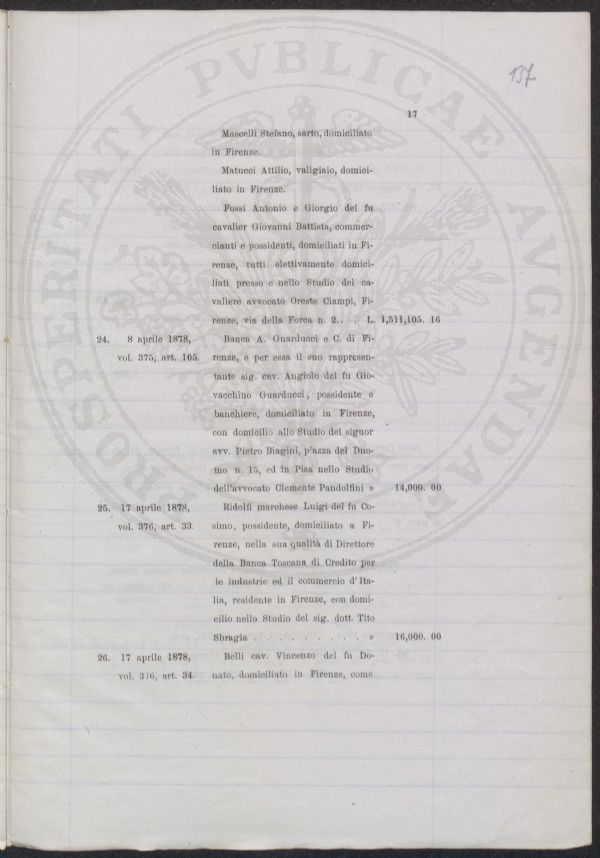 137
17
Mascelli Stefano, sarto, domiciliato
in Firenze.
Matucci Attilio, valigiaio, domici-
liato in Firenze.
Fossi Antonio e Giorgio del fu
cavalier Giovanni Battista, commer-
cianti e possidenti, domiciliati in Fi-
renze, tutti elettivamente domici-
liati presso e nello Studio del ca-
valiere avvocato Oreste Ciampi, Fi-
renze, via della Forca n. 2. . . L. 1,511,105. 16
24. 8 aprile 1878, Banca A. Guarducci e C. di Fi-
vol. 375, art. 105. renze, e per essa il suo rappresen-
tante sig. cav. Angiolo del fu Gio-
vacchino Guarducci, possidente e
banchiere, domiciliato in Firenze,
con domicilio allo Studio del signor
avv. Pietro Biagini, p'azza del Duo-
mo n. 15, ed in Pisa nello Studio
dell'avvocato Clemente Pandolfini » 14,000. 00
25. 17 aprile 1878, Ridolfi marchese Luigi del fu Co-
vol. 376, art. 33. simo, possidente, domiciliato a Fi-
renze, nella sua qualità di Direttore
della Banca Toscana di Credito per
le industrie ed il commercio d'Ita-
lia, residente in Firenze, con domi-
cilio nello Studio del sig. dott. Tito
Sbragia . . . . . . . . . » 16,000. 00
26. 17 aprile 1878, Belli cav. Vincenzo del fu Do-
vol. 376, art. 34. nato, domiciliato in Firenze, come
PROSPERITATI PVBLICAE AVGENDAE